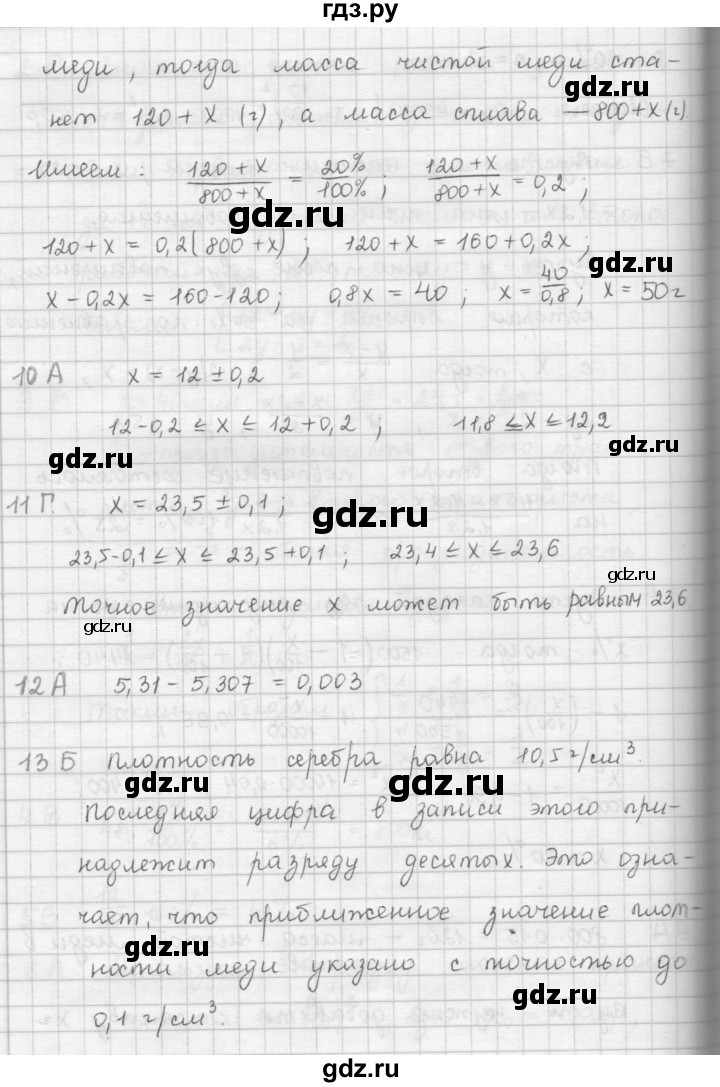 гдз.ру
меди, тогда масса чистой меди ста-
нет 120 + x (г), а масса сплава — 800 + x (г).
gdz.ru
Имеем: (120 + x)/(800 + x) = 20%/100%; (120 + x)/(800 + x) = 0,2;
gdz.ru
120 + x = 0,2(800 + x); 120 + x = 160 + 0,2x;
gdz.ru
x - 0,2x = 160 - 120; 0,8x = 40; x = 40/0,8; x = 50 г
10 А x = 12 ± 0,2
12 - 0,2 ≤ x ≤ 12 + 0,2; 11,8 ≤ x ≤ 12,2
gdz.ru
11 Г. x = 23,5 ± 0,1;
gdz.ru
23,5 - 0,1 ≤ x ≤ 23,5 + 0,1; 23,4 ≤ x ≤ 23,6
gdz.ru
Точное значение x может быть равным 23,6
gdz.ru
12 А 5,31 - 5,307 = 0,003
13 Б Плотность серебра равна 10,5 г/см³.
gdz.ru gdz.ru
Последняя цифра в записи этого при-
надлежит разряду десятых. Это озна-
чает, что приближенное значение плот-
gdz.ru
ности меди указано с точностью до
gdz.ru
0,1 г/см³.
gdz.ru